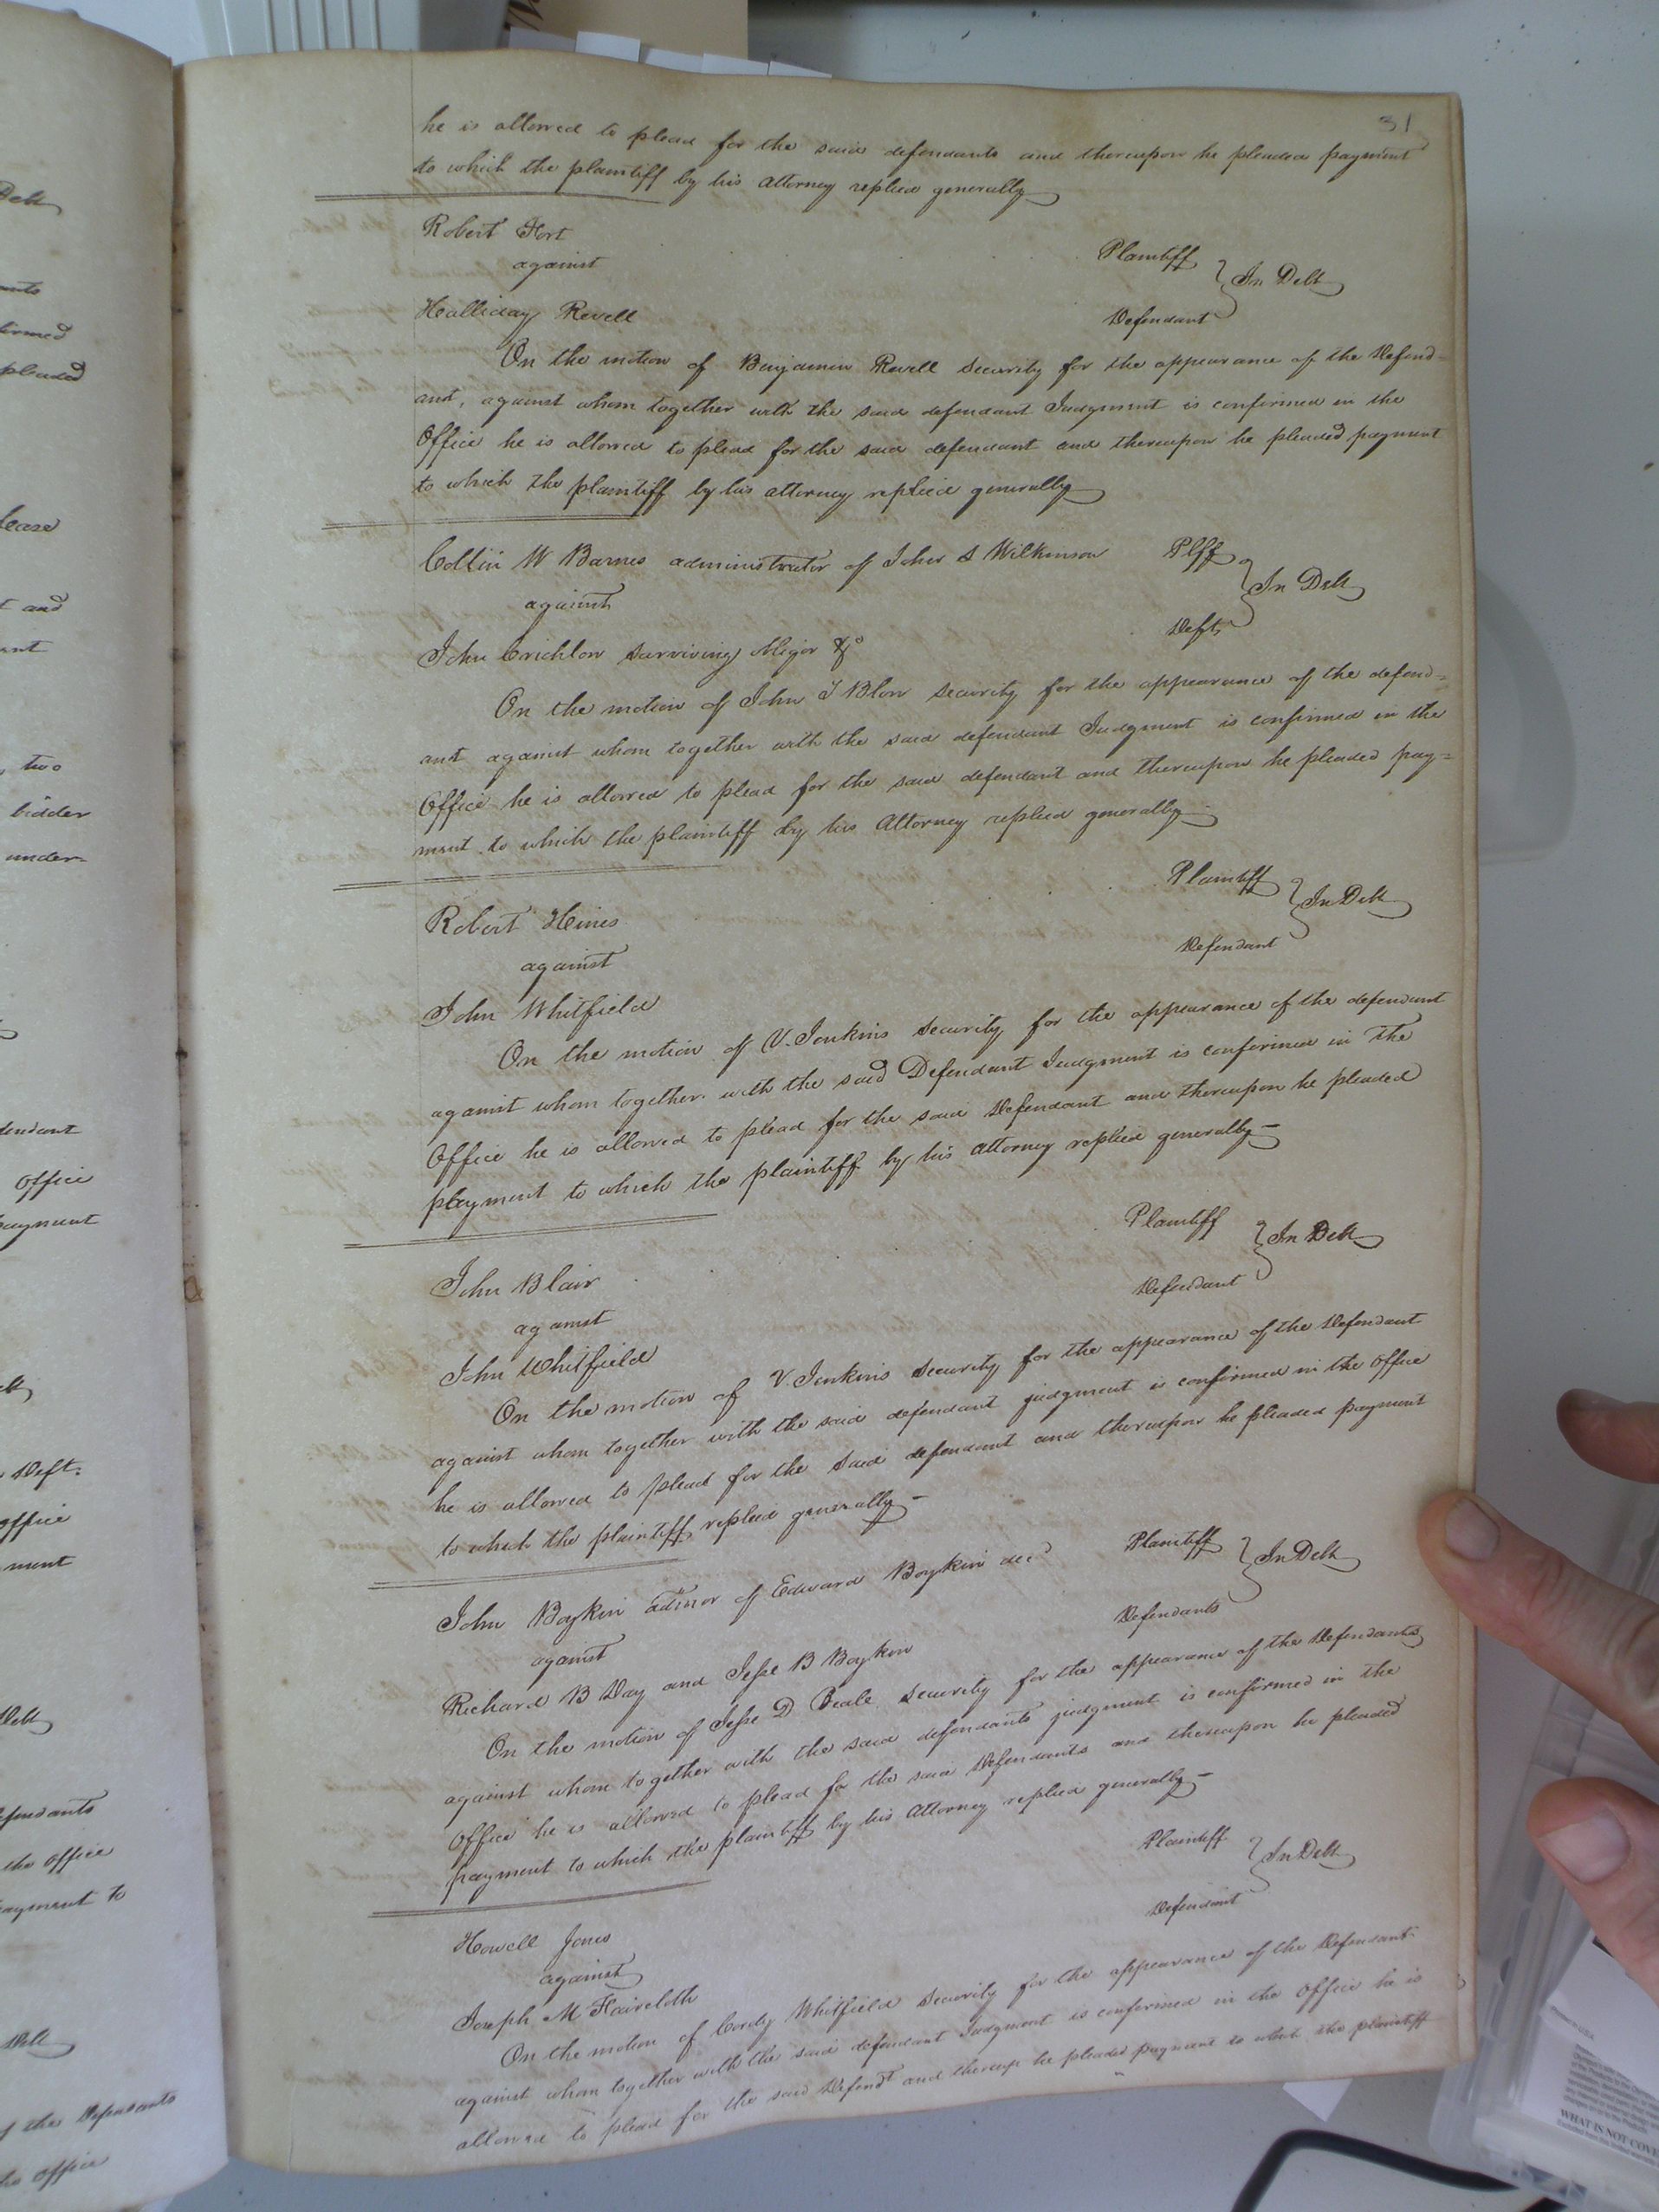 31
he is allowed to plead for the said defendants and thereupon he pleaded payment
to which the plaintiff by his attorney replied generally
Robert Hort Plaintiff
against In Debt
Halliday Revell Defendant
On the motion of Benjamin Revell security for the appearance of the Defend-
ant, against whom together with the said defendant Judgment is confirmed in the
Office he is allowed to plead for the said defendant and thereupon he pleaded payment
to which the plaintiff by his attorney replied generally
Collin W Barnes administrator of John S Wilkinson Plff
against In Debt
John Crichlow surviving obligor &c Deft
On the motion of John T Blow security for the appearance of the defend=
ant against whom together with the said defendant Judgment is confirmed in the
Office he is allowed to plead for the said defendant and thereupon he pleaded pay=
ment to which the plaintiff by his Attorney replied generally
Robert Hines Plaintiff
against In Debt
John Whitfield Defendant
On the motion of V. Jenkins security for the appearance of the defendant
against whom together with the said Defendant Judgment is confirmed in the
Office he is allowed to plead for the said Defendant and thereupon he pleaded
playment to which the plaintiff by his attorney replied generally-
John Blair Plaintiff
against In Debt
John Whitfield Defendant
On the motion of V. Jenkins security for the appearance of the Defendant
against whom together with the said defendant judgment is confirmed in the office
he is allowed to plead for the said defendant and thereupon he pleaded payment
to which the plaintiff replied generally-
John Boykin admor of Edward Boykin decd Plaintiff
against In Debt
Richard B Day and Jesse B Boykin Defendants
On the motion of Jesse D Beale security for the appearance of the Defendants
against whom together with the said defendants judgment is confirmed in the
Office he is allowed to plead for the said Defendants and thereupon he pleaded
payment to which the plaintiff by his attorney replied generally-
Howell Jones Plaintiff
against In Debt
Joseph M Faircloth Defendant
On the motion of Cordy Whitfield security for the appearance of the Defendant
against whom together with the said defendant Judgment is confirmed in the Office he is
allowed to plead for the said Defendt and thereup he pleaded payment to which the plaintiff